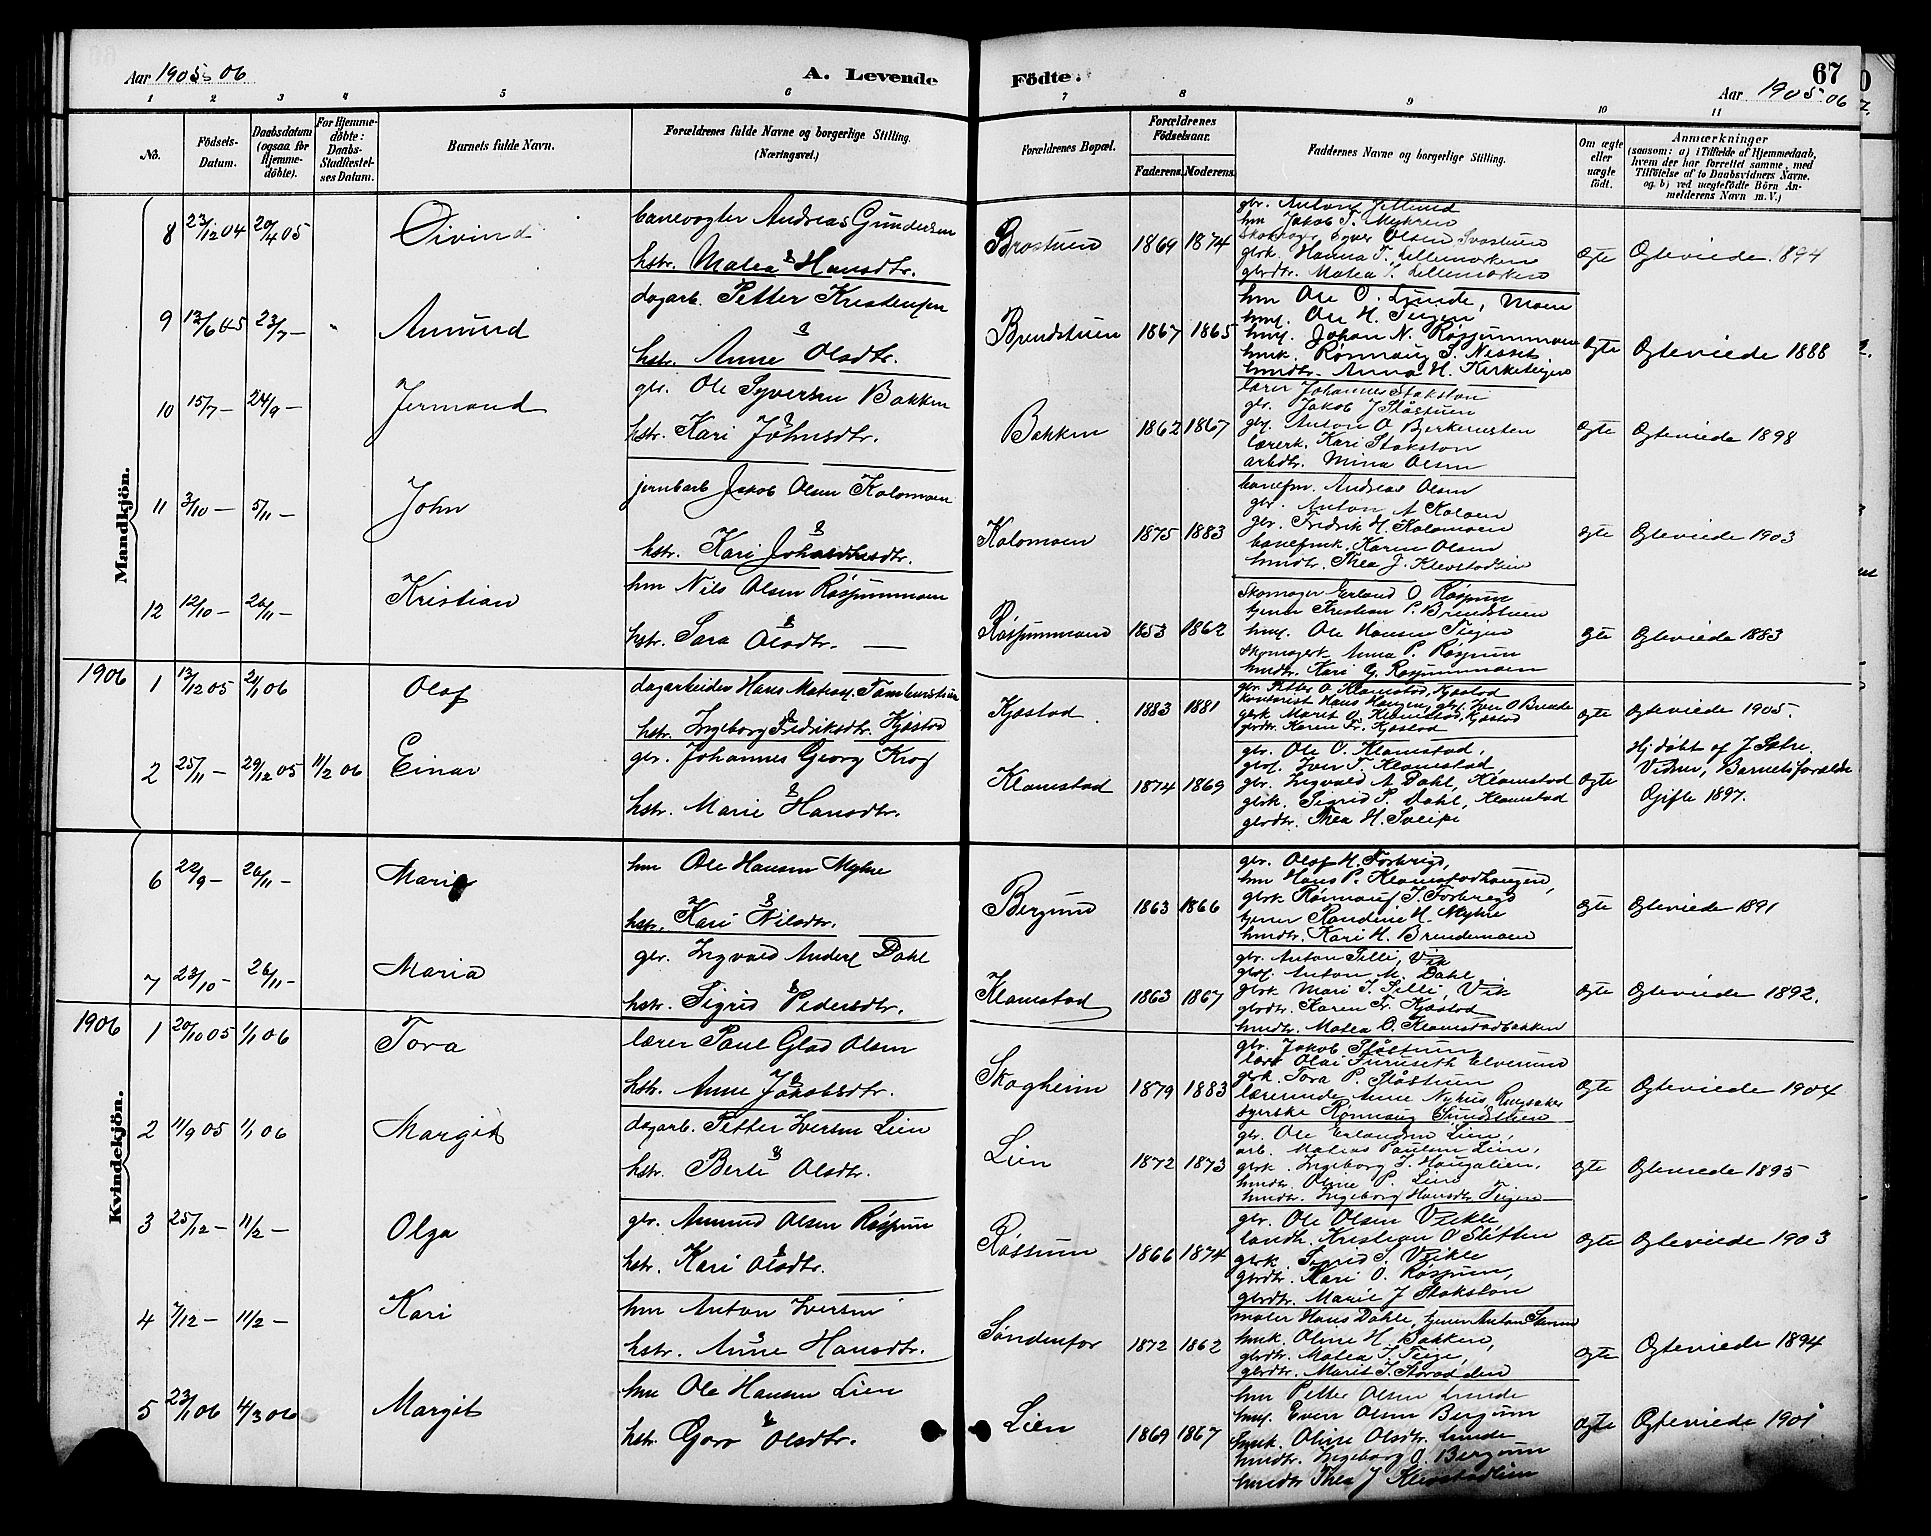 Aar 1905-06
A. Levende Födte.
67
Aar 1905-06
1 2 3 4 5 6 7 8 9 10 11
No.
Födsels-Datum.
Daabsdatum (ogsaa for Hjemmedöbte).
For Hjemmedöbte: Daabs-Stadfæstelses Datum.
Barnets fulde Navn.
Forældrenes fulde Navne og borgerlige Stilling. (Næringsvei.)
Forældrenes Bopæl.
Forældrenes Födselsaar.
Faderens. Moderens.
Faddernes Navne og borgerlige Stilling.
Om ægte eller uægte födt.
Anmærkninger
(saasom: a) i Tilfælde af Hjemmedaab, hvem der har forrettet samme, med Tilföielse af to Daabsvidners Navne. og b) ved uægtefödte Börn Anmelderens Navn m. V.)
Mandkjön.
8 23/12 04 20/4 05 Öivind
banevogter Andreas Gundersen
& hstr. Matea Hansdtr.
Brostuen 1869 1874
gbr. Anton
hm Jakob T. Myhren
Olsen
gbrk. Hanna T.
gbrdtr. Matea T.
Ogte Ogteviede 1894
9 12/6 05 23/7 - Amund
dagarb. Petter Kristensen
& hstr. Anne Olsdtr.
Brendstuen 1867 1865
hm Ole O. Lunde, Moen
hmf. Ole H. Teigen
hmf. Johan N. Røssummoen
hmk. Rønnaug S. Nisset
hmdtr. Anna H. Kirketeigen
Ogte Ogteviede 1888
10 15/7 - 24/9 - Jermond
gbr. Ole Syversen Bakken
& hstr. Kari Johnsdtr.
Bakken 1862 1867
lærer Johannes Stokston
gbr. Jakob J Slåstuen
gbf. Anton O
lærerk. Kari Stokston
arbdtr. Mina Olsen
Ogte Ogteviede 1898
11 3/10 - 5/11 - John
jernbarb Jakob Olsen Kolomoen
& hstr. Kari
Kolomoen 1875 1883
banefm. Andreas Olsen
gbr. Anton A Koloen
gbr. Fredrik H. Kolomoen
banefmk. Karen Olsen
hmdtr. Thea J. Klevstadlien
Ogte Ogteviede 1903
12 12/10 - 26/11 - Kristian
hm Nils Olsen Røssummoen
& hstr. Sara Olsdtr.
Røssummoen 1853 1862
Skomager Erland O Røssum
tjener Kristian P. Brendstuen
hmf. Ole Hansen Teigen
Skomagerk Anna P. Røssum
hmdtr. Kari G. Røssummoen
Ogte Ogteviede 1883
1906 1 13/12 05 21/1 06 Olaf
dagarbeider Hans Tamburstuen
& hstr. Ingeborg Fredriksdtr. Kjøstad
Kjøstad 1883 1881
gbr. Petter O. Klomstad, Kjøstad
kontorist Hans Haugen, gbf. Iver O Brende
gbrk. Marit O. Klomstad, Kjøstad
gbrdtr. Karen Fr. Kjøstad
Ogte Ogteviede 1905.
2 25/11 - 29/12 05 11/2 06 Einar
gbr. Johannes Georg Krog
& hstr. Marie Hansdtr.
Klomstad 1874 1869
gbr. Ole O. Klomstad,
gbf. Iver T. Klomstad,
gbr. Ingvald A Dahl, Klomstad
gbrk. Sigrid P. Dahl, Klomstad
gbrdtr. Thea H. Sveipe
Ogte
Hj.døbt af J Sætre.
Vidner, Barnets forældre
Gifte 1897.
Kvindekjön.
6 22/9 - 26/11 - Maria
hm Ole Hansen Myhre
& hstr. Kari Nilsdtr.
Bergum 1863 1866
gbr. Olaf H. Forbrigd,
hm Hans P. Klomstadhaugen,
gbrk. Rønnaug J. Forbrigd
tjener Randine H. Myhre
hmdtr. Kari H. Brendemoen
Ogte Ogteviede 1891
7 23/10 - 26/11 - Maria
gbr. Ingvald Anders. Dahl
& hstr. Sigrid Pedersdtr.
Klomstad 1863 1867
gbr. Anton Selli, Vik
gbf. Anton M. Dahl
gbrk Mari S. Selli, Vik
gbrdtr. Karen Fr. Kjøstad
hmdtr. Matea O. Klomstadbakken
Ogte Ogteviede 1892.
1906 1 20/10 05 1/1 06 Tora
lærer Paul Glad Olsen
& hstr. Anne Jakobsdtr.
Skogheim 1879 1883
gbr. Jakob Slåstuen
Olai Furuseth Elverum
gbrk. Tora P. Slåstuen
lærerinde Anne Nyhus, Ringsaker
syerske Rønnaug Sundstuen
Ogte Ogteviede 1904
2 11/9 05 1/1 06 Margit
dagarb. Petter Iversen Lien
& hstr. Berte Olsdtr.
Lien 1872 1873
gbr. Ole Erlandsen Lien,
arb. Matias Paulsen Lien,
gbrk. Ingeborg J. Haugalien,
hmdtr. Oline P. Lien
hmdtr. Ingeborg Hansdtr. Teigen
Ogte Ogteviede 1895
3 25/12 - 11/2 - Olga
gbr. Amund Olsen Røssum
& hstr. Kari Olsdtr.
Røssum 1866 1874
gbr. Ole Olsen Vekle
landh. Kristian O Sletten
gbrk. Sigrid S. Vekle
gbrdtr. Kari O. Røssum,
gbrdtr. Marie J Stokston
Ogte Ogteviede 1903
4 7/12 - 11/2 - Kari
hm Anton Iversen
& hstr. Anne Hansdtr.
Søndenfor 1872 1862
maler Hans Dahle, tjener Anton
hmk. Oline H. Bakken,
gbrdtr. Matea T. Teige,
gbrdtr. Marit J.
Ogte Ogteviede 1894
5 23/1 06 4/3 06 Margit
hm Ole Hansen Lien
& hstr. Goro Olsdtr.
Lien 1869 1867
hm Petter Olsen Lunde
hmf. Even Olsen Bergum
hmk. Oline Olsdtr. Lunde
hmdtr. Ingeborg O. Bergum
hmdtr Thea J Klevstadlien
Ogte Ogteviede 1901